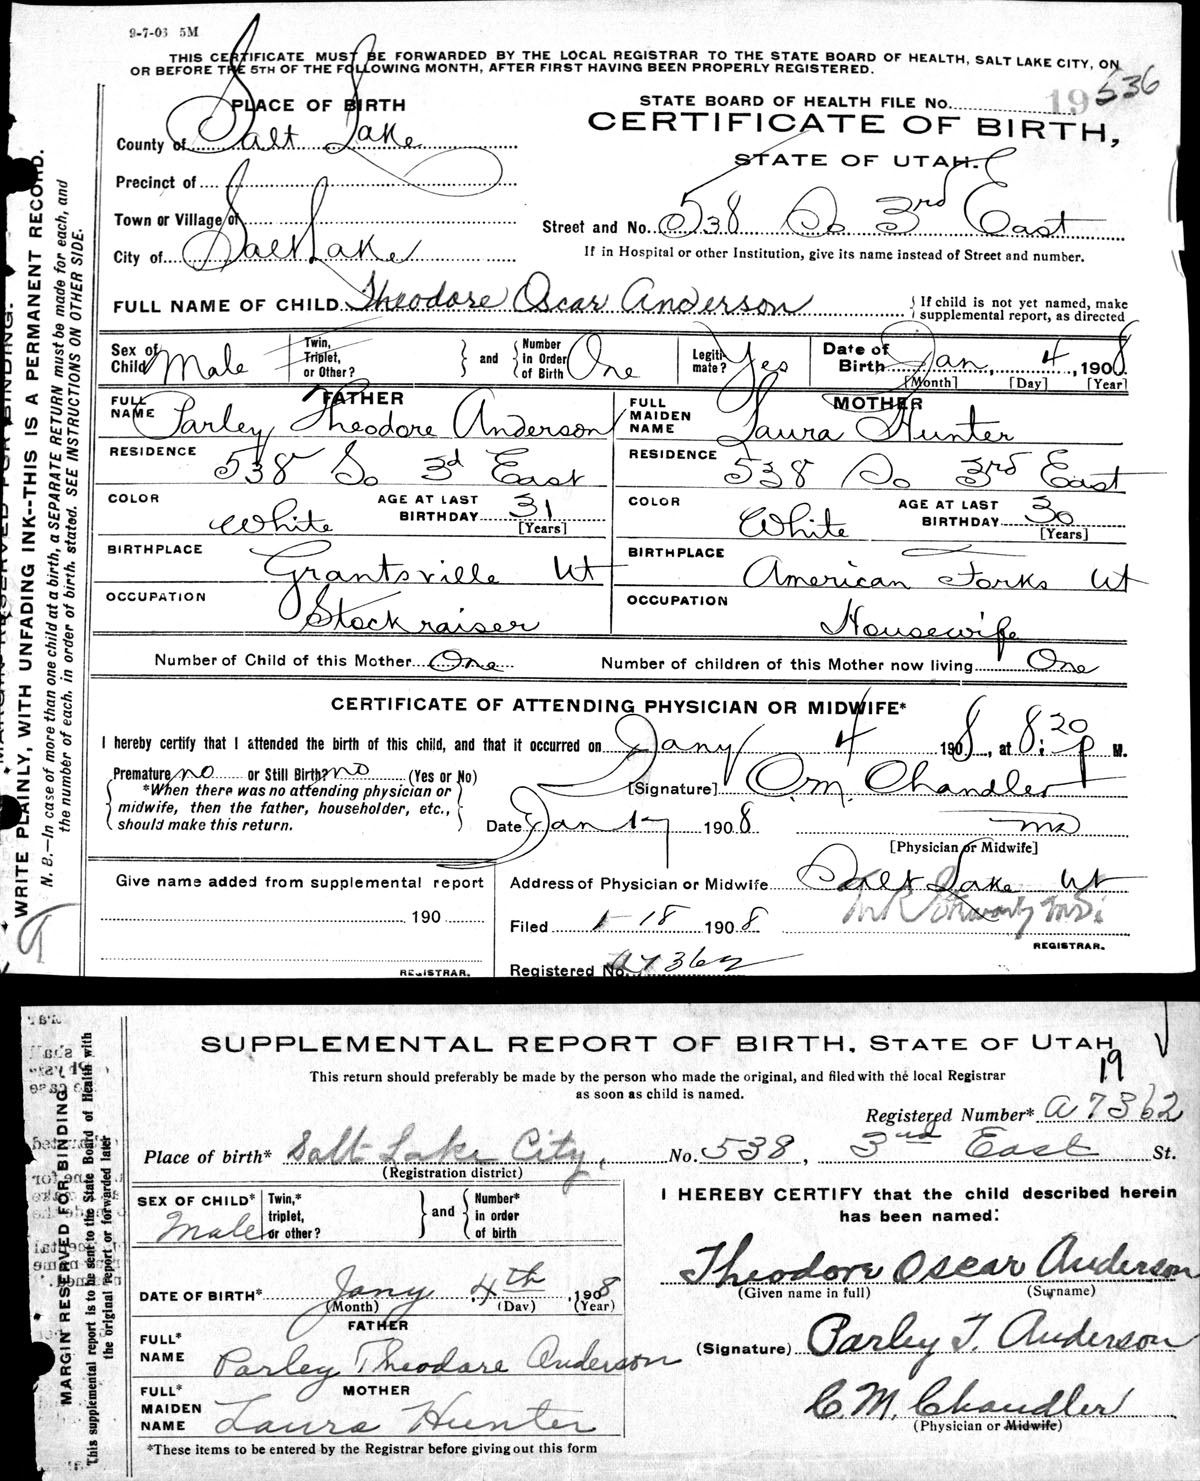 9-7-03 5M
THIS CERTIFICATE MUST BE FORWARDED BY THE LOCAL REGISTRAR TO THE STATE BOARD OF HEALTH, SALT LAKE CITY, ON
OR BEFORE THE 5TH OF THE FOLLOWING MONTH, AFTER FIRST HAVING BEEN PROPERLY REGISTERED.
PLACE OF BIRTH
STATE BOARD OF HEALTH FILE No. 19 536
CERTIFICATE OF BIRTH,
STATE OF UTAH.
County of Salt Lake
Precinct of
Town or Village of
Street and No. 538 So 3rd East
City of Salt Lake
If in Hospital or other Institution, give its name instead of Street and number.
FULL NAME OF CHILD Theodore Oscar Anderson { If child is not yet named, make
supplemental report, as directed
Sex of Child Male Twin, Triplet, or Other? } and { Number in Order of Birth One Legiti-mate? Yes Date of Birth Jan. 4, 1908
[Month] [Day] [Year]
FATHER
FULL NAME Parley Theodore Anderson
MOTHER
FULL MAIDEN NAME Laura Hunter
RESIDENCE 538 So 3d East
RESIDENCE 538 So 3rd East
COLOR White AGE AT LAST BIRTHDAY 31 [Years]
COLOR White AGE AT LAST BIRTHDAY 30 [Years]
BIRTHPLACE Grantsville Ut
BIRTHPLACE American Forks Ut
OCCUPATION Stockraiser
OCCUPATION Housewife
Number of Child of this Mother One Number of children of this Mother now living One
CERTIFICATE OF ATTENDING PHYSICIAN OR MIDWIFE*
I hereby certify that I attended the birth of this child, and that it occurred on Jany 4 1908, at 8:20 P M.
Premature no or Still Birth no (Yes or No)
*When there was no attending physician or
midwife, then the father, householder, etc.,
should make this return.
[Signature] C.M. Chandler
Date Jan 17 1908 MD
[Physician or Midwife]
Give name added from supplemental report
190
REGISTRAR.
Address of Physician or Midwife Salt Lake Ut
Filed 1-18 1908
REGISTRAR.
Registered No. A7362
MARGIN RESERVED FOR BINDING.
WRITE PLAINLY, WITH UNFADING INK--THIS IS A PERMANENT RECORD.
N. B.—In case of more than one child at a birth, a SEPARATE RETURN must be made for each, and
the number of each, in order of birth, stated. SEE INSTRUCTIONS ON OTHER SIDE.
SUPPLEMENTAL REPORT OF BIRTH, STATE OF UTAH
This return should preferably be made by the person who made the original, and filed with the local Registrar
as soon as child is named.
19
Registered Number* A7362
Place of birth* Salt Lake City, No. 538, 3rd East St.
(Registration district)
SEX OF CHILD* Male Twin,* triplet, or other? } and { Number* in order of birth
DATE OF BIRTH* Jany 4th, 1908
(Month) (Day) (Year)
FATHER
FULL* NAME Parley Theodore Anderson
MOTHER
FULL* MAIDEN NAME Laura Hunter
*These items to be entered by the Registrar before giving out this form
I HEREBY CERTIFY that the child described herein
has been named:
Theodore Oscar Anderson
(Given name in full) (Surname)
(Signature) Parley T. Anderson
C. M. Chandler
(Physician or Midwife)
MARGIN RESERVED FOR BINDING
This supplemental report is to be sent to the State Board of Health with
the original report or forwarded later